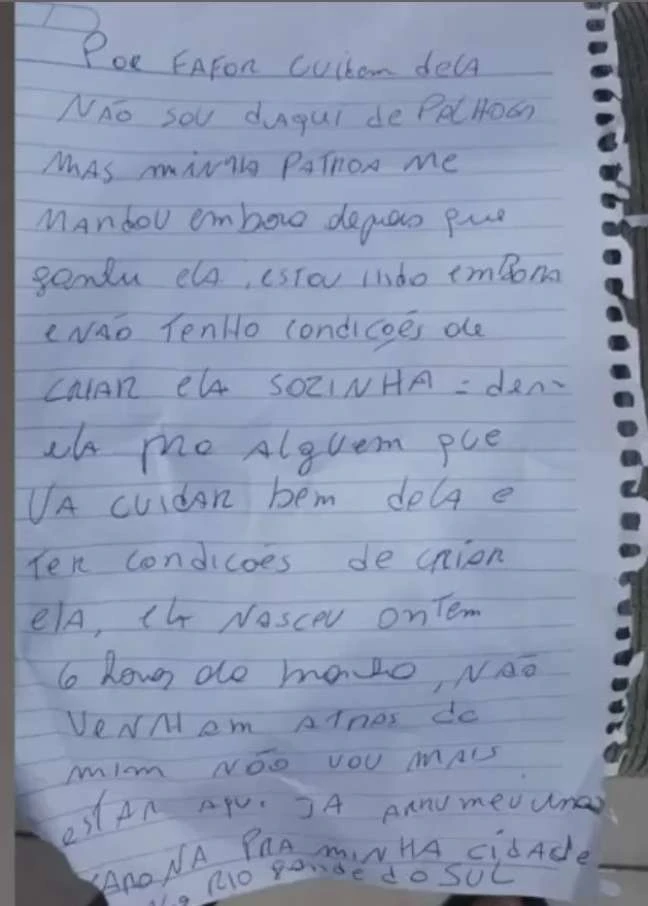 Por FAFOR CUidem delA
NÃO SOU dAqui de PALHOÇA
MAS MINHA PATROA Me
MANdOU embora depois que
ganhei elA, esTOU indo embora
e NÃO TeNHO condições de
CRIAR elA SOZINHA
elA pra Alguem que
VA CUIdAR bem delA e
Ter condicões de criar
elA, elA NASCeU onTem
6 horas da manhã, NÃO
VeNHAm ATRAS de
mim NÃO VOU mAIS
eSTAR Aqui JA ARRUMEi uma
CARONA PRA MINHA CidAde
RIO gRANde do SUL